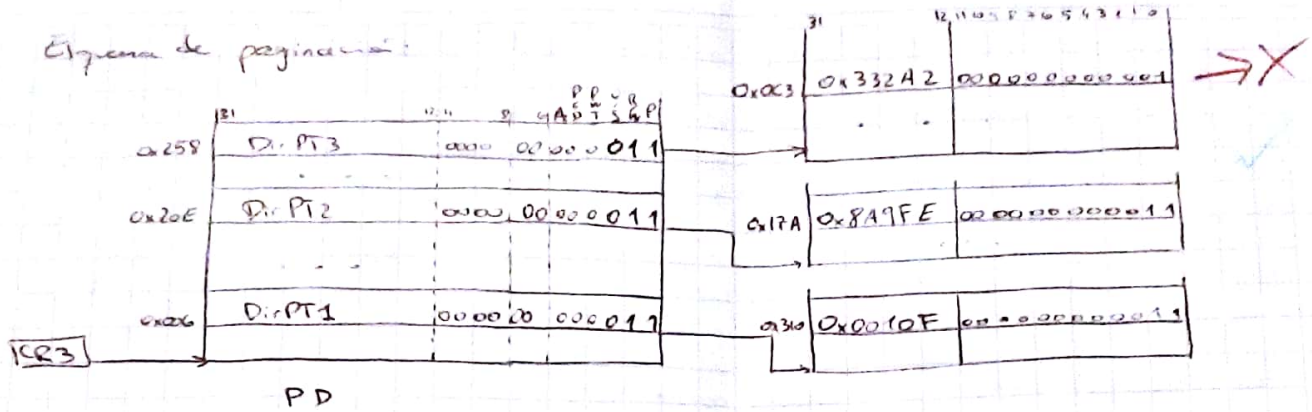 Esquema de paginación:
31 12 11 8 4 A PCD PWT U/S R/W P
0x258 Dir PT3 0000 00000 011
0x20E Dir PT2 0000 00000 011
0x006 Dir PT1 000000 000011
CR3
PD
31 12 11 10 9 8 7 6 5 4 3 2 1 0
0x0C3 0x332A2 000000000001 → X
0x17A 0x8A9FE 000000000011
0x310 0x0010F 000000000011